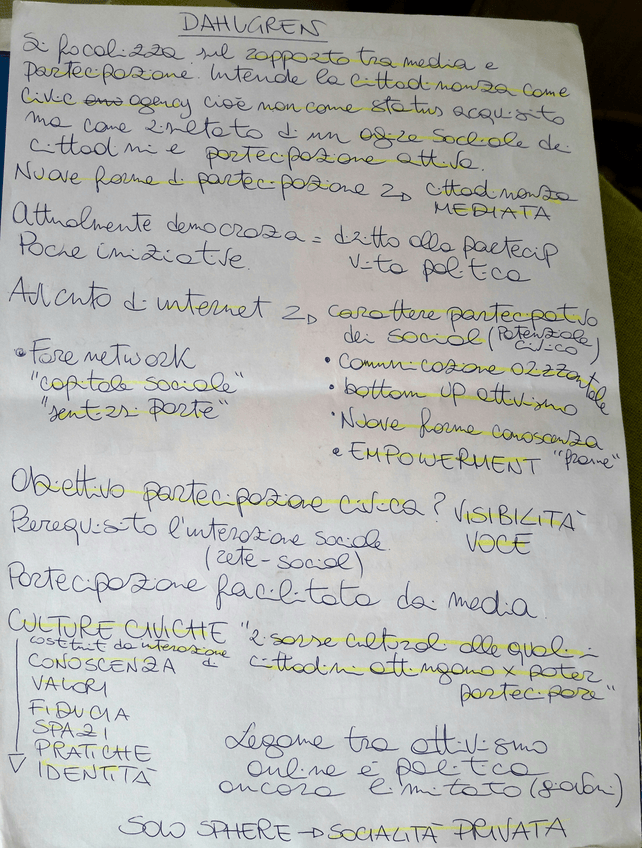 DAHLGREN
Si focalizza sul rapporto tra media e
partecipazione. Intende la cittadinanza come
civic agency cioè non come status acquisito
ma come risultato di un agire sociale dei
cittadini e partecipazione attiva.
Nuove forme di partecipazione → cittadinanza
MEDIATA
Attualmente democrazia = diritto alla partecip
Poche iniziative. vita politica
Avvento di internet → carattere partecipativo
dei social (potenziale civico)
• Fare network
"capitale sociale"
"sentirsi parte"
• comunicazione orizzontale
• bottom up attivismo
• Nuove forme conoscenza
• EMPOWERMENT "frame"
Obiettivo partecipazione civica? VISIBILITÀ
VOCE
Prerequisito l'interazione sociale.
(rete-social)
Partecipazione facilitata dai media.
CULTURE CIVICHE "risorse culturali alle quali i
costituite da interazione di cittadini attingono x poter
partecipare"
CONOSCENZA
VALORI
FIDUCIA
SPAZI
PRATICHE
IDENTITÀ
Legame tra attivismo
online e politica
ancora limitato (giovani)
SOLO SPHERE → SOCIALITÀ PRIVATA